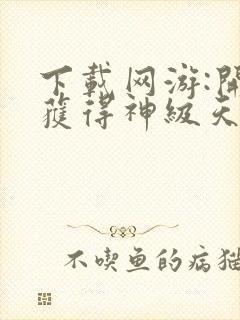 下載网游:開
獲得神級天
不喫鱼的病猫